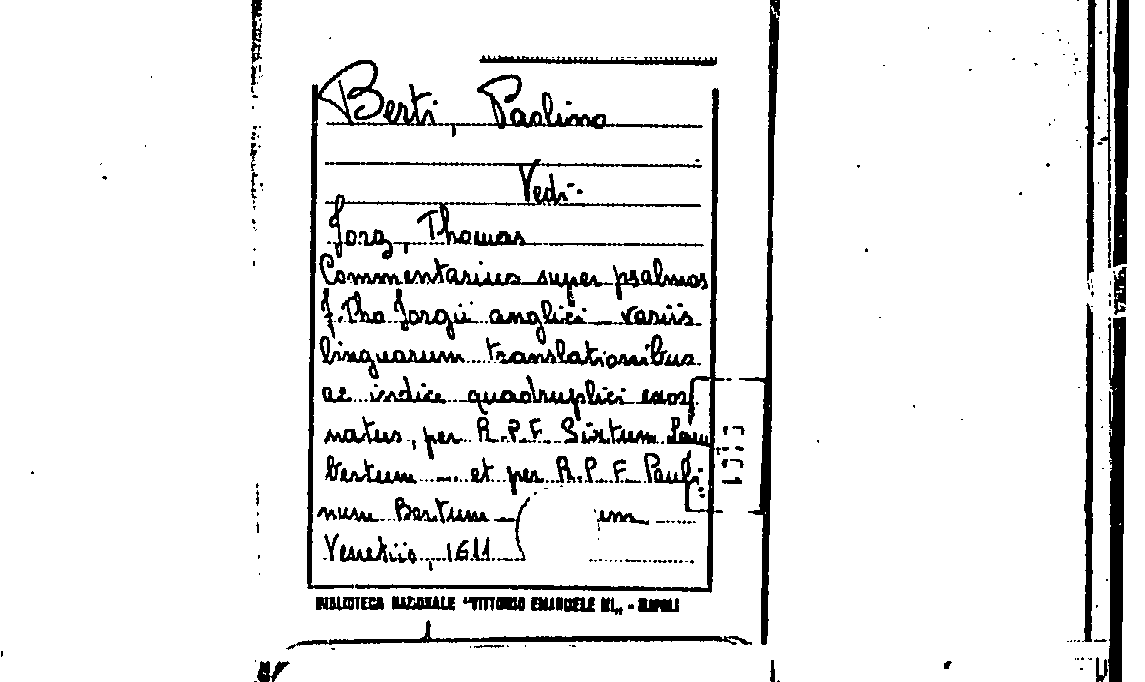 Berti, Paolino
Vedi:
Jorz, Thomas
Commentarius super psalmos
J. Tho Jorgii anglici variis
linguarum translationibus
ac indice quadruplici exor
natus, per R.P.F. Sixtum Lam
bertum ... et per R.P.F. Pauli
num Bertum
Venetiis, 1611
BIBLIOTECA NAZIONALE "VITTORIO EMANUELE III„ - NAPOLI